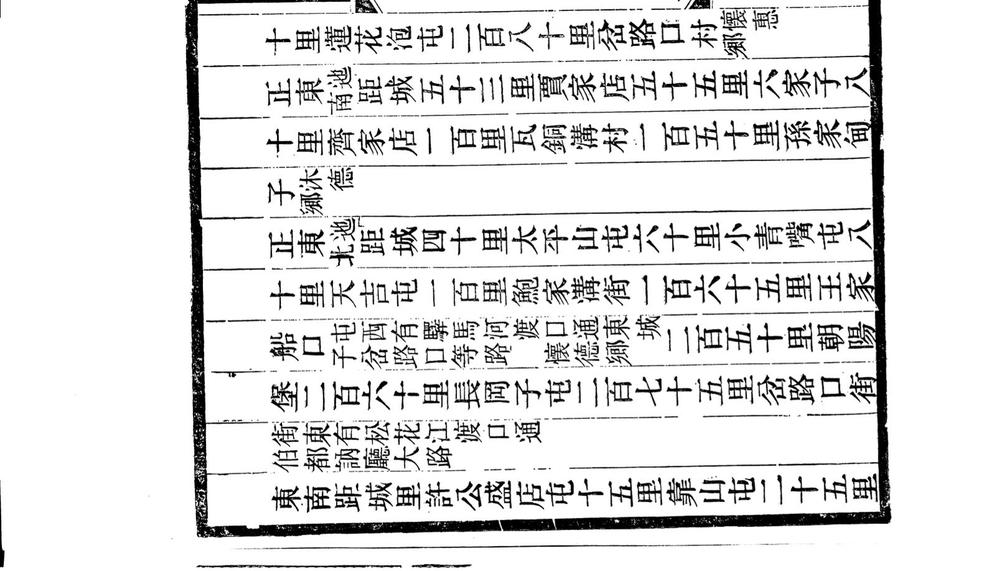 十里蓮花泡屯二百八十里岔路口村懷惠鄉
正東迤南距城五十三里賈家店五十五里六家子八
十里齊家店一百里瓦銅溝村一百五十里孫家甸
子沐德鄉
正東迤北距城四十里太平山屯六十里小青嘴屯八
十里天吉屯一百里鮑家溝街一百六十五里王家
船口屯西有驛馬河渡口通東城子岔路口等路懷德鄉二百五十里朝陽
堡二百六十里長岡子屯二百七十五里岔路口街
街東有松花江渡口通伯都訥廳大路
東南距城里許公盛店屯十五里靠山屯二十五里